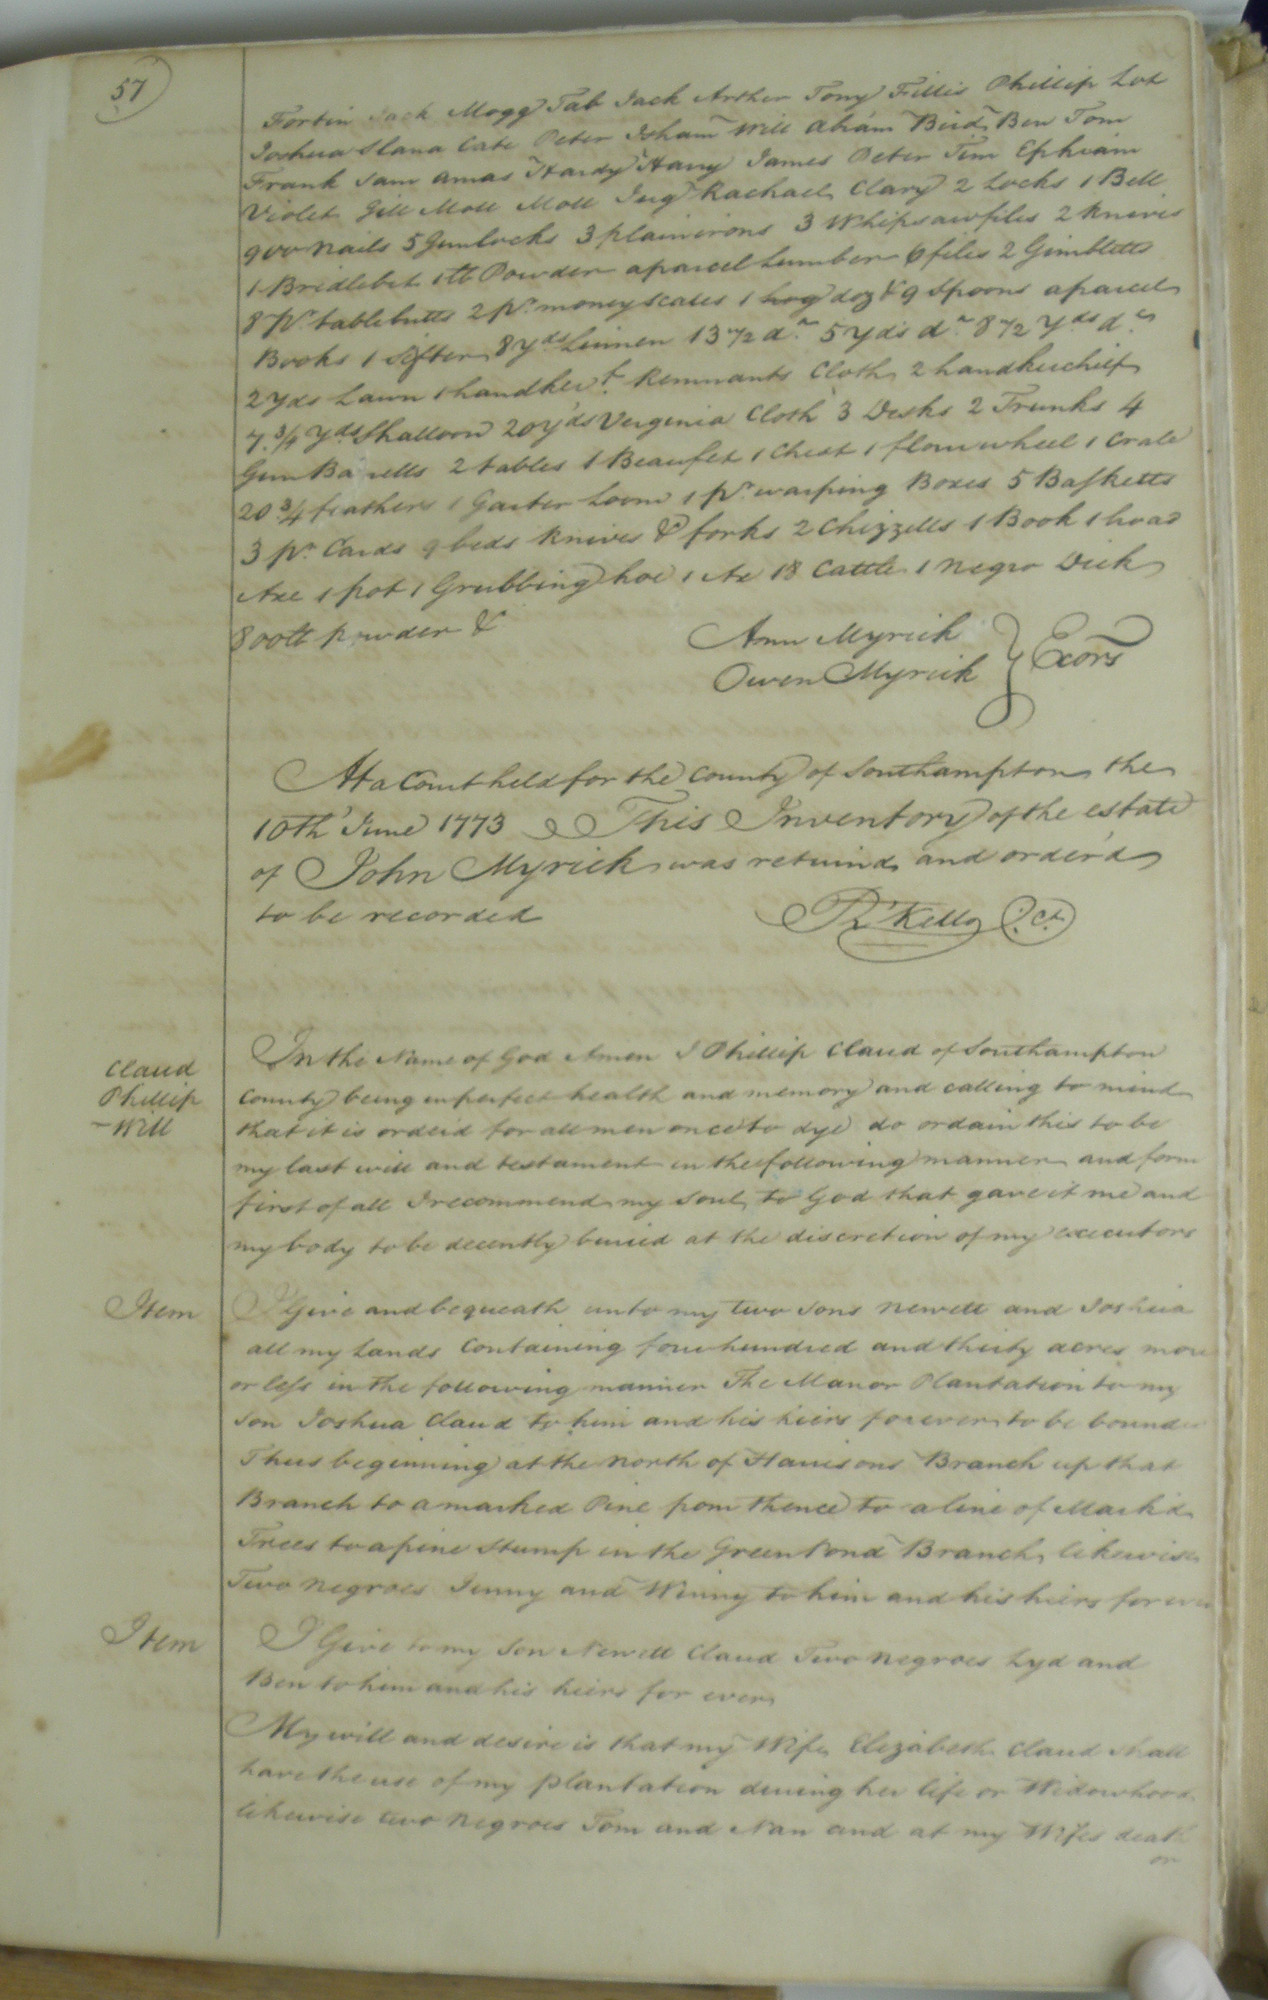 57
Fortin Jack Mogg Tab Jack Arther Tony Fillis Phillip Lot
Joshua Slana Cate Peter Isham Will Abram Bird Ben Tom
Frank Sam Amas Hardy Harry James Peter Tim Ephraim
Violet Gill Moll Moll Jug Rachael Clary 2 Locks 1 Bell
900 nails 5 Gunlocks 3 plainirons 3 Whipsawfiles 2 Knives
1 Bridlebit 1 lb Powder a parcel Lumber 6 files 2 Gimbletts
8 pr. tablebutts 2 pr. money scales 1 hog doz & 9 Spoons a parcel
Books 1 Sifter 8 yds Linnen 13 1/2 do. 5 yds do 8 1/2 yds do
2 yds Lawn 1 handkert. Remnants Cloth 2 handkerchief
7 3/4 yds Shalloon 20 yds Verginia Cloth 3 Desks 2 Trunks 4
Gun Barrells 2 tables 1 Beaufet 1 Chest 1 flaxwheel 1 Crate
20 3/4 feathers 1 Garter Loom 1 pr. warping Boxes 5 Basketts
3 pr. Cards 9 beds Knives & forks 2 Chizzells 1 Book 1 broad
Axe 1 pot 1 Grubbing hoe 1 Ax 18 Cattle 1 negro Dick
800 lb powder &
Ann Myrick
Owen Myrick } Exors
At a Court held for the County of Southampton the
10th June 1773 This Inventory of the estate
of John Myrick was returnd and order'd
to be recorded
Rd Kello C. Ct.
Claud
Phillip
Will
In the Name of God Amen I Phillip Claud of Southampton
County being in perfect health and memory and calling to mind
that it is orderd for all men once to dye do ordain this to be
my last will and testament in the following manner and form
first of all I recommend my Soul to God that gave it me and
my body to be decently buried at the discretion of my executors
Item
I Give and bequeath unto my two sons Newell and Joshua
all my Lands Containing four hundred and thirty acres more
or less in the following manner The Manor Plantation to my
Son Joshua Claud to him and his heirs forever to be bounded
Thus beginning at the north of Harrisons Branch up that
Branch to a marked Pine from thence to a line of Mark'd
Trees to a pine Stump in the Green Pond Branch likewise
Two negroes Jenny and Winny to him and his heirs for ever
Item
I Give to my Son Newell Claud Two negroes Lyd and
Ben to him and his heirs for ever
My will and desire is that my Wife Elizabeth Claud shall
have the use of my plantation during her life or Widowhood
likewise two negroes Tom and Nan and at my Wifes death
or